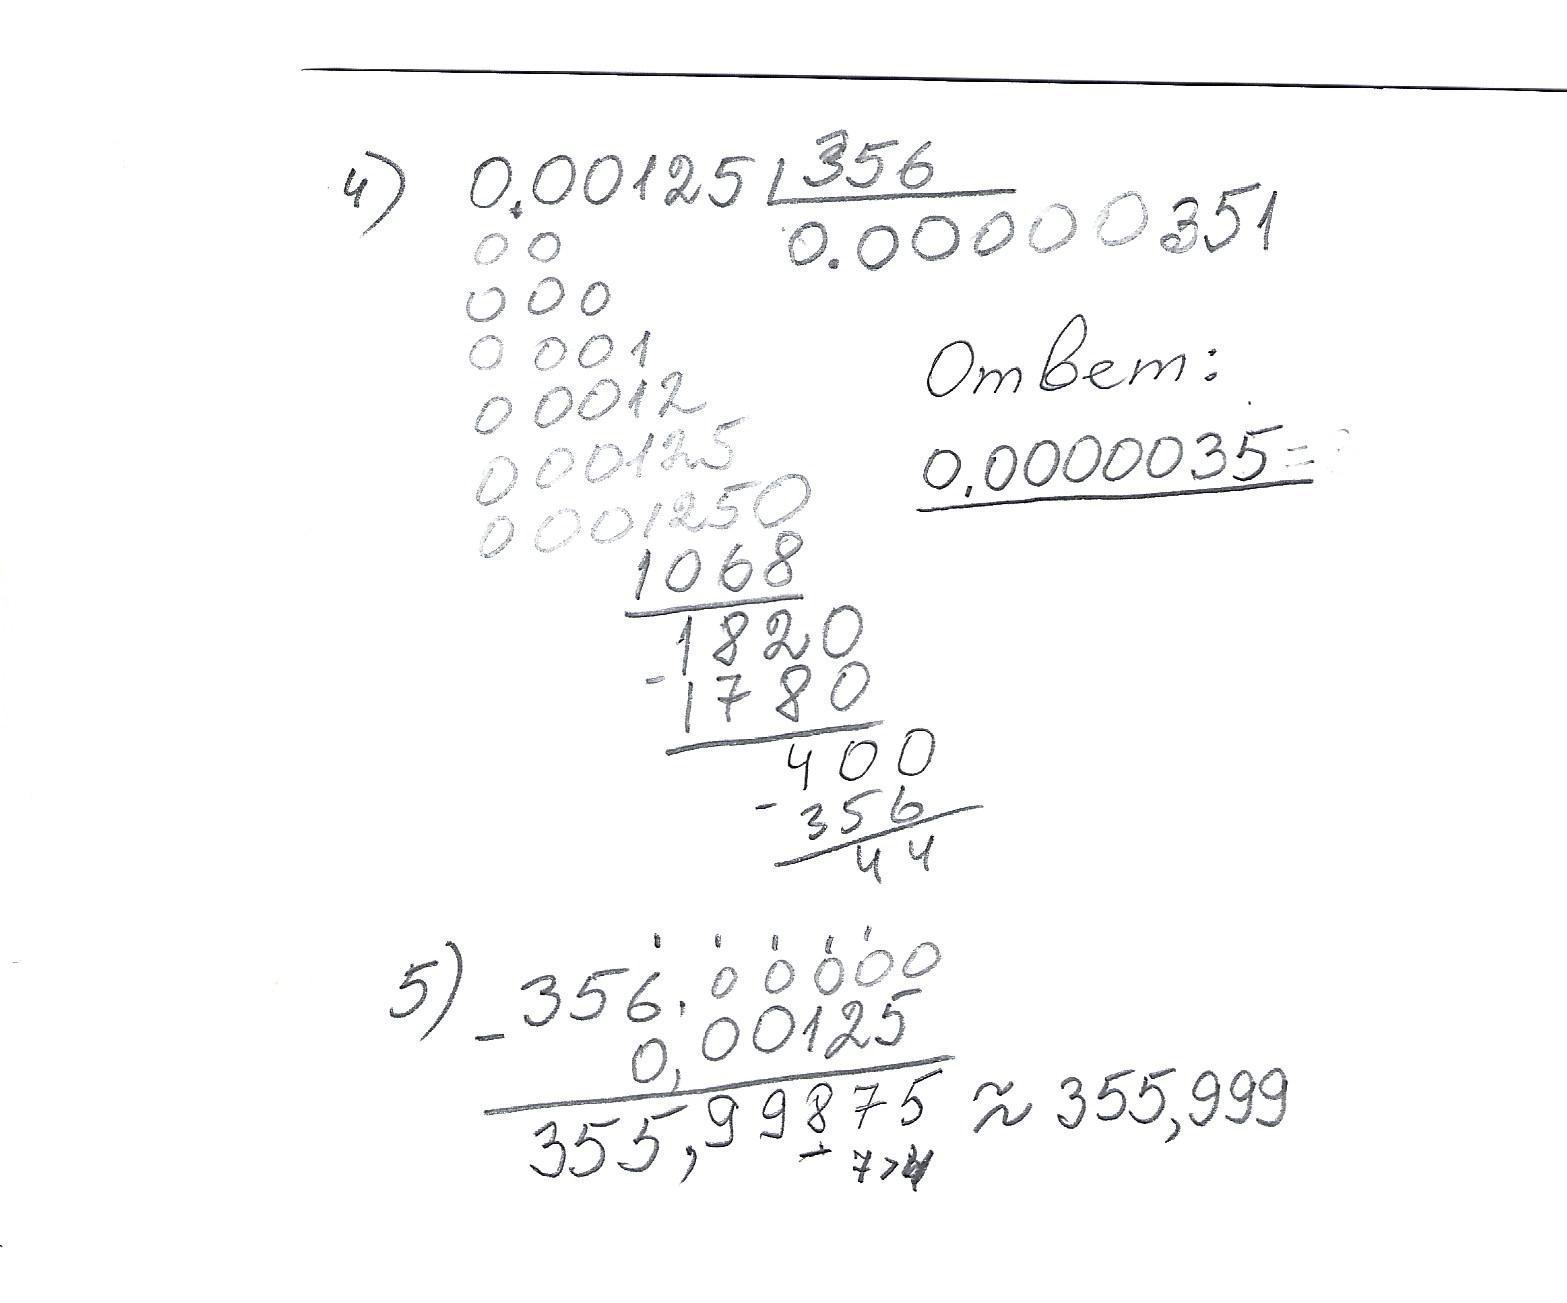 4) 0.00125 356
00 0.00000351
000
0001
00012
000125
0001250
1068
1820
- 1780
400
- 356
44
Ответ:
0,0000035=
5) - 356,00000
0,00125
355,99875 ≈ 355,999
+ 7>4